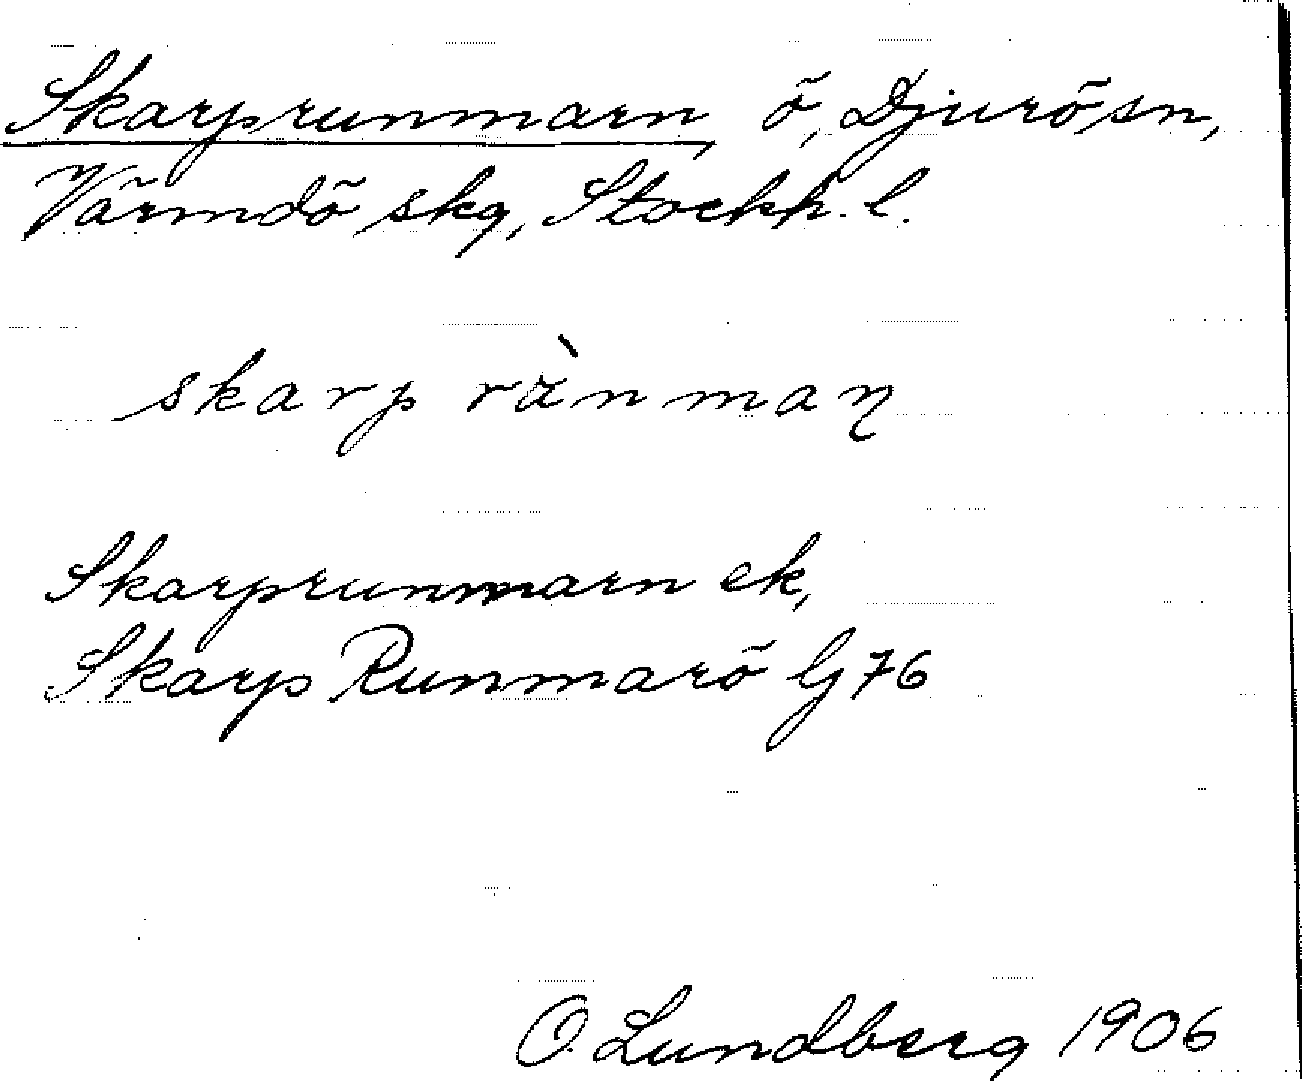 Skarprunmarn, ö, Djurö sn,
Värmdö skg, Stockh. l.
skarp rùnmaɳ
Skarprunmarn ek,
Skarp Runmarö Gj 76
O. Lundberg 1906